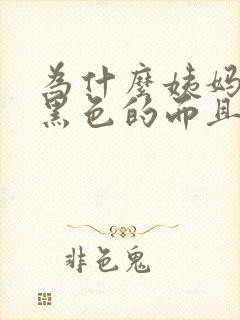 為什麼姨媽
黑色的而且
非色鬼